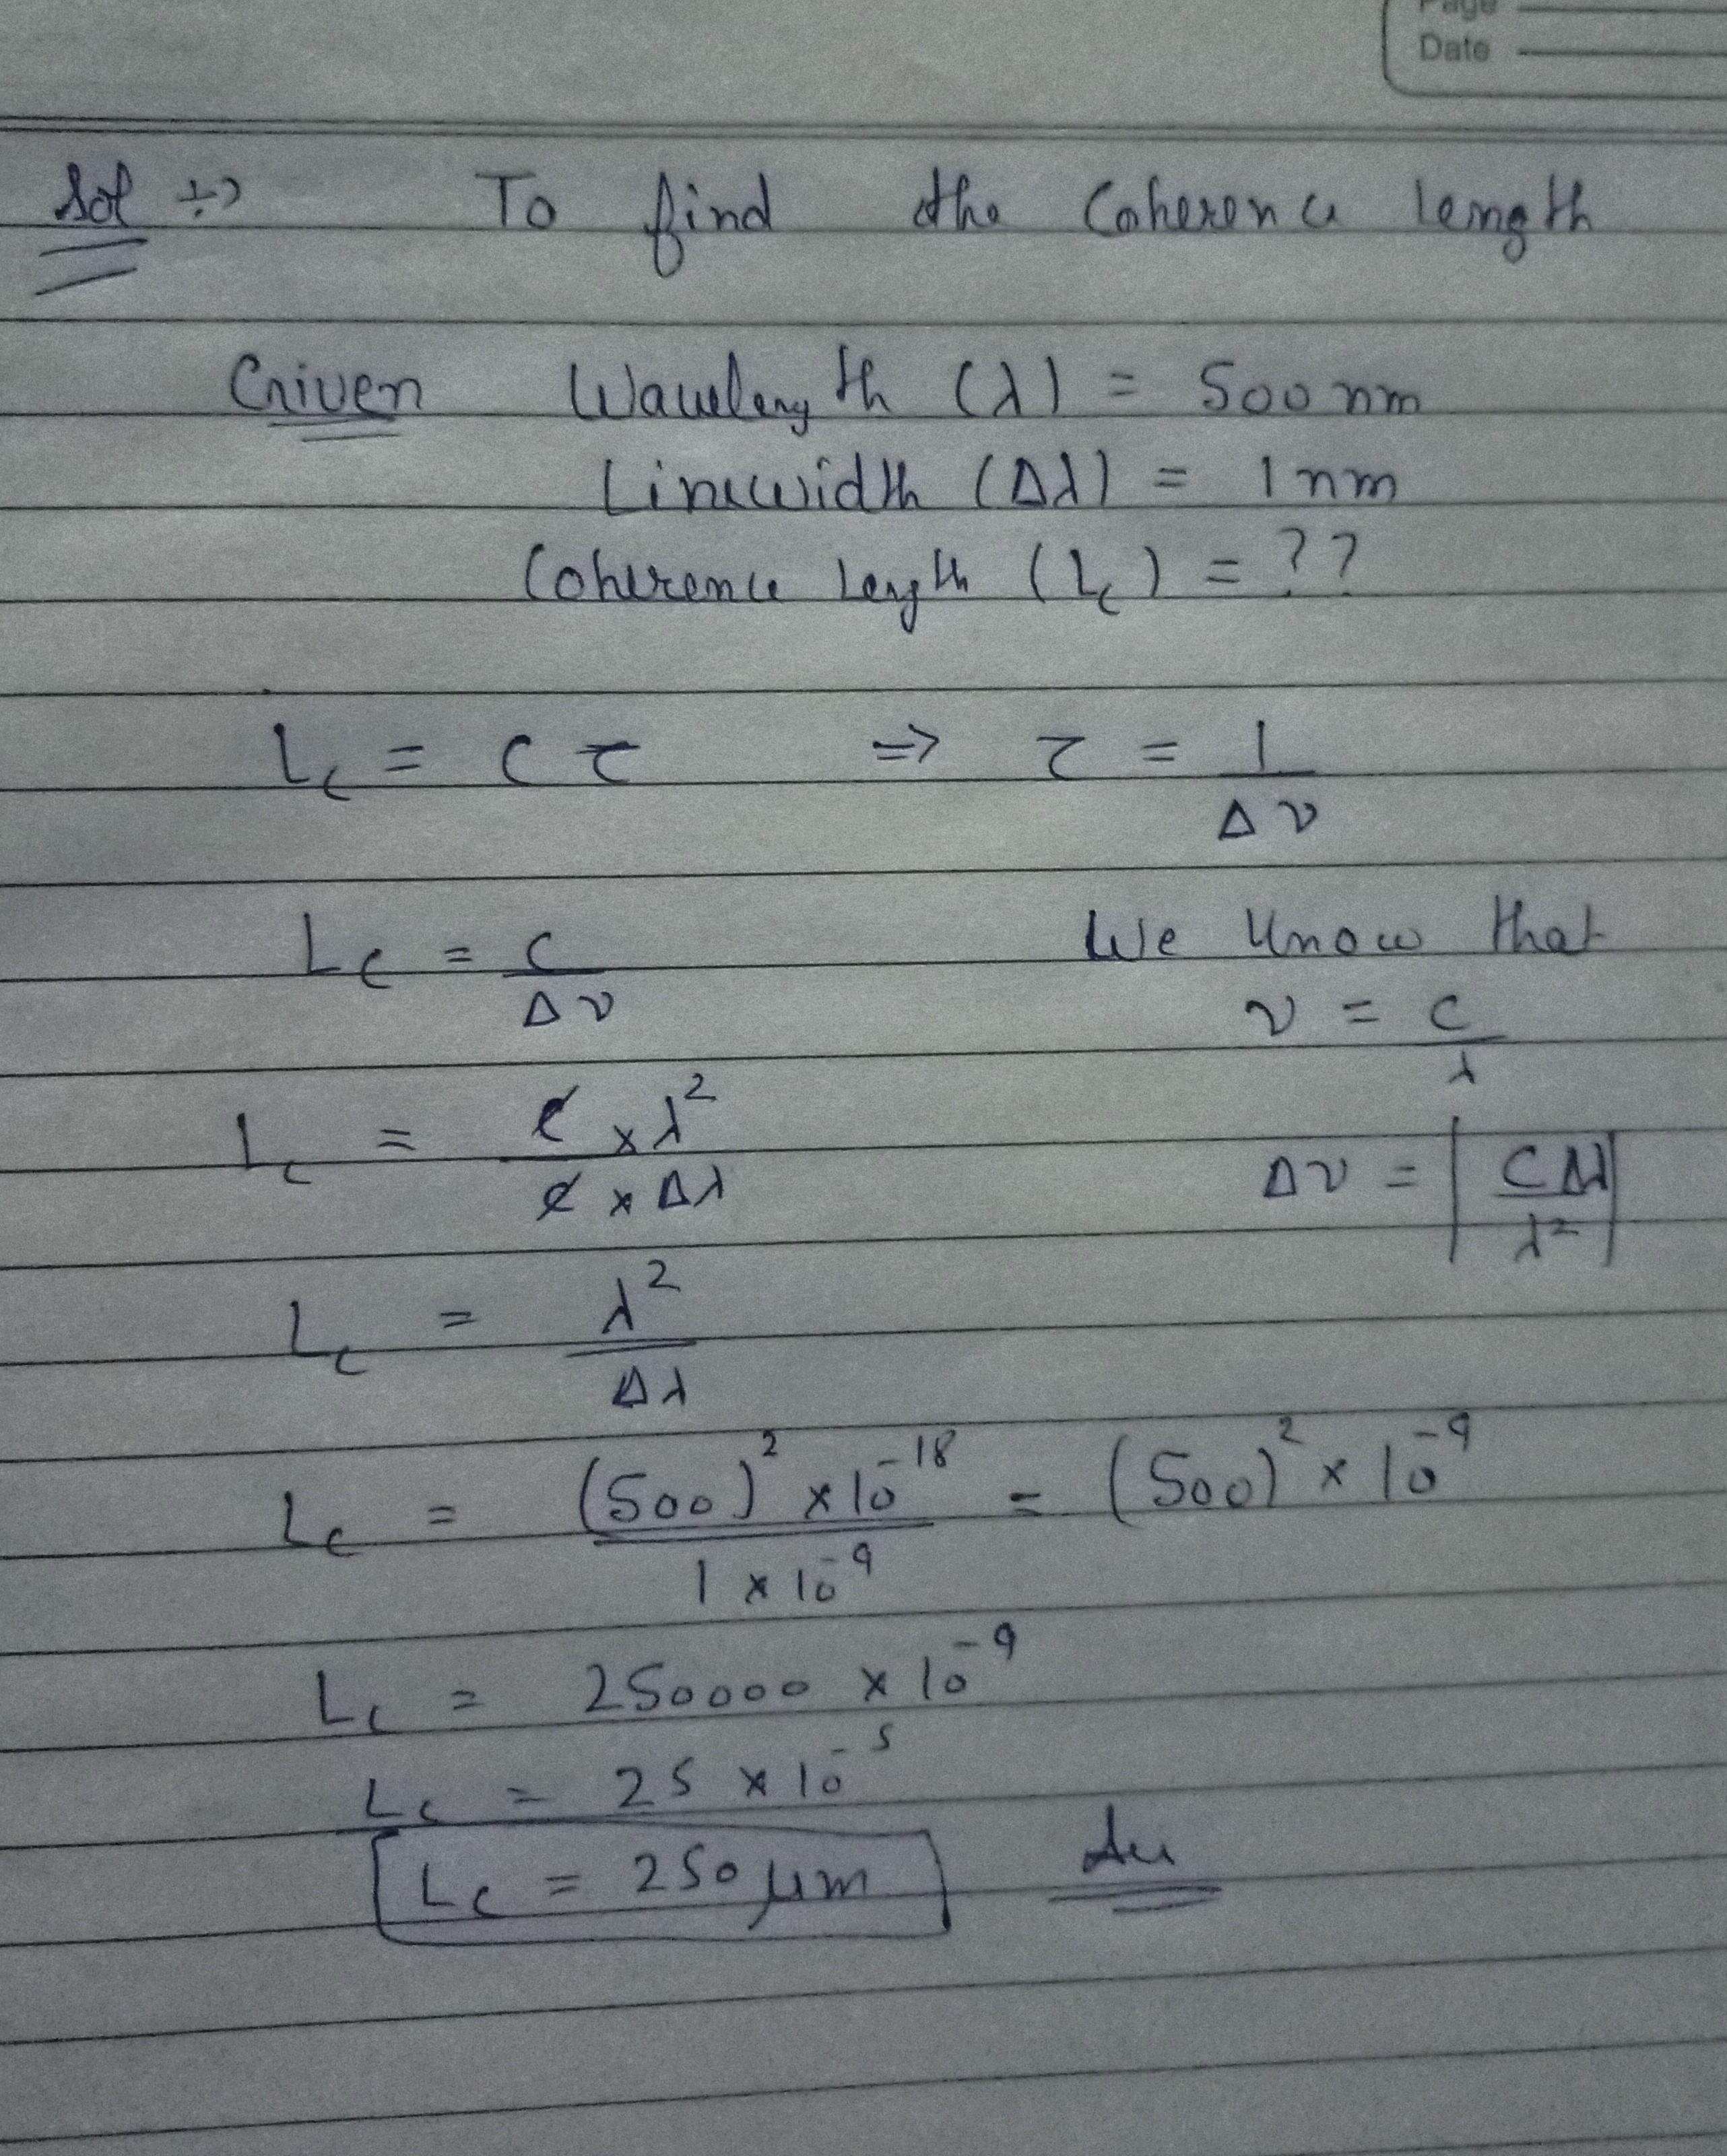 Page
Date
Sol ÷→ To find the Coherence length
Given Wavelength (λ) = 500 nm
Linewidth (Δλ) = 1 nm
Coherence length (Lc) = ??
Lc = cτ ⇒ τ = 1/Δν
Lc = c/Δν We know that
ν = c/λ
Lc = c × λ²/c × Δλ Δν = |cΔλ/λ²|
Lc = λ²/Δλ
Lc = (500)² × 10⁻¹⁸/1 × 10⁻⁹ = (500)² × 10⁻⁹
Lc = 250000 × 10⁻⁹
Lc = 25 × 10⁻⁵
Lc = 250 μm Au